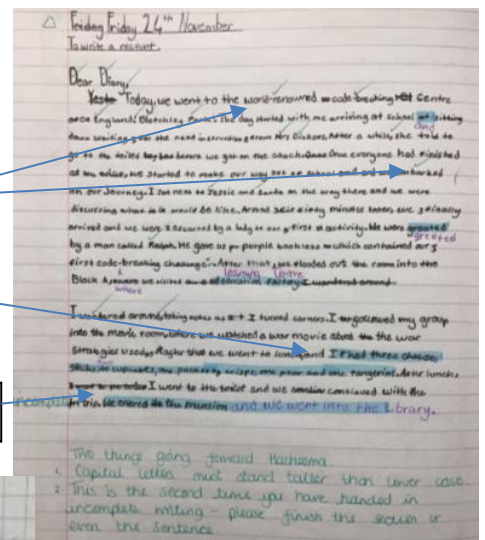 Friday Friday 24th November
To write a recount.
Dear Diary,
Today, we went to the world-renowned code-breaking centre
of England: Bletchley Park. The day started with me arriving at school sitting
and
down waiting for the next instruction from Mrs Dickens. After a while, she told to
go to the toilet before we got on the coach. Once everyone had finished
at the toilet, we started to make our way out of school and embarked
on our journey. I sat next to Jessie and on the way there and we were
discussing what it would be like. Around sixty minutes later, we finally
arrived and we were escorted by a lady to our first activity. We were greated
greeted
by a man called Ralph. He gave us purple booklets which contained our
first code-breaking challenge. After that, we flooded out the room into the
learning Centre
Block A, we visited education, factory wandered around.
where
I wandered around, taking notes as I turned corners. I followed my group
into the movie room, where we watched a war movie about the war
strategies used. After that we went to lunch, and I had three cheese
sticks, cupcakes, packet of crisps, one pear and one tangerine. After lunch,
I went to the toilet and we continued with the
incomplete
trip. We entered the mansion and we went into the Library.
Two things going forward
1. Capital letters must stand taller than lower case.
2. This is the second time you have handed in
incomplete writing - please finish the section or
even the sentence.